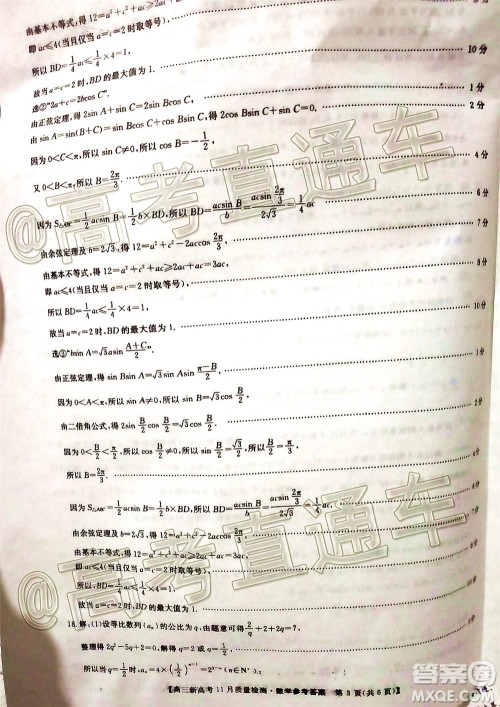 由基本不等式,得12=a²+c²+ac≥2ac+ac=3ac,
即ac≤4(当且仅当a=c=2时取等号),
所以BD=1/4ac≤1/4×4=1,
故当a=c=2时,BD的最大值为1. 10分
选②"2a+c=2bcos C".
由正弦定理,得2sin A+sin C=2sin Bcos C, 1分
由sin A=sin(B+C)=sin Bcos C+cos Bsin C,得2cos Bsin C+sin C=0. 2分
因为0<C<π,所以sin C≠0,所以cos B=-1/2,
又0<B<π,所以B=2π/3. 4分
因为S△ABC=1/2acsin B=1/2b×BD,所以BD=acsin B/b=acsin 2π/3/2√3=1/4ac 6分
由余弦定理及b=2√3,得12=a²+c²-2accos 2π/3, 7分
由基本不等式,得12=a²+c²+ac≥2ac+ac=3ac,
即ac≤4(当且仅当a=c=2时取等号), 8分
所以BD=1/4ac≤1/4×4=1,
故当a=c=2时,BD的最大值为1. 10分
选③"bsin A=√3asin A+C/2".
由正弦定理,得sin Bsin A=√3sin Asin π-B/2, 1分
因为0<A<π,所以sin A≠0,所以sin B=√3cos B/2,
由二倍角公式,得2sin B/2cos B/2=√3cos B/2. 2分
因为0<B/2<π/2,所以cos B/2≠0,所以sin B/2=√3/2,所以B/2=π/3,
所以B=2π/3. 4分
因为S△ABC=1/2acsin B=1/2b×BD,所以BD=acsin B/b=acsin 2π/3/2√3=1/4ac,
由余弦定理及b=2√3,得12=a²+c²-2accos 2π/3,
由基本不等式,得12=a²+c²+ac≥2ac+ac=3ac,
即ac≤4(当且仅当a=c=2时取等号),
所以BD=1/4ac≤1/4×4=1,
故当a=c=2时,BD的最大值为1.
18.解:(1)设等比数列{aₙ}的公比为q,由题意可得2/q+2+2q=7,
整理得2q²-5q+2=0,解得q=1/2或q=2,
【高三新高考11月质量检测·数学参考答案 第3页(共6页)】
@高考直通车
@高考直通车
答案圈
MXQE.COM